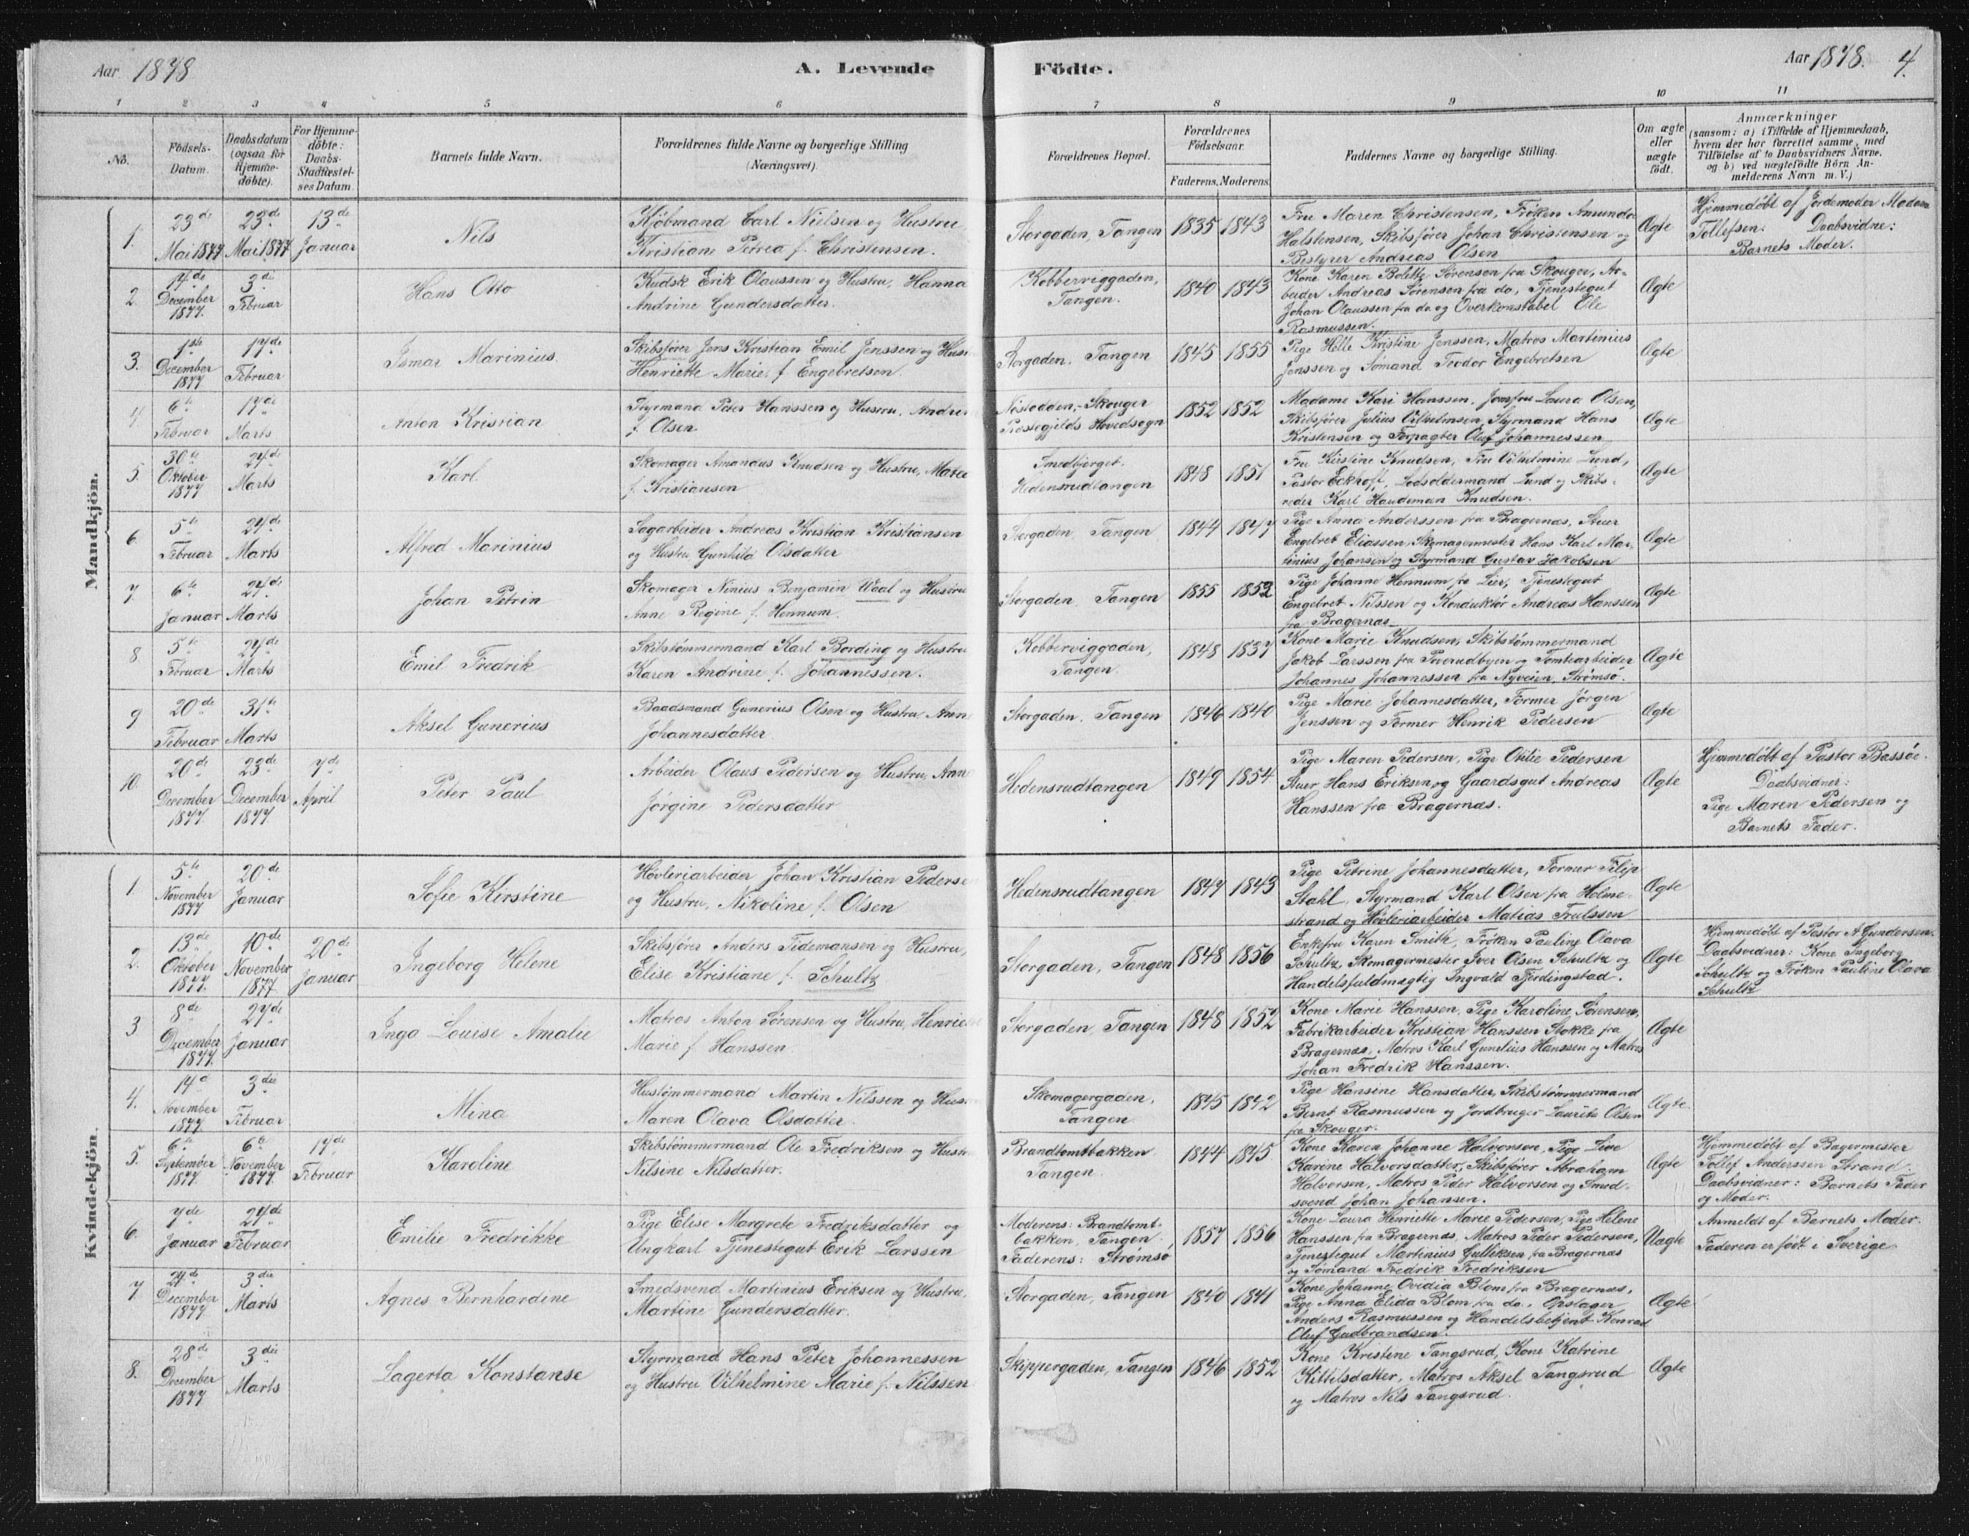 Aar 1878
A. Levende Födte.
Aar 1878. 4.
1 2 3 4 5 6 7 8 9 10 11
No.
Födsels-
Datum.
Daabsdatum
(ogsaa for
Hjemme-
döbte).
For Hjemme-
döbte:
Daabs-
Stadfæstel-
ses Datum.
Barnets fulde Navn.
Forældrenes fulde Navne og borgerlige Stilling
(Næringsvei).
Forældrenes Bopæl.
Forældrenes
Födselsaar.
Faderens. Moderens.
Faddernes Navne og borgerlige Stilling.
Om ægte
eller
uægte
födt.
Anmærkninger
(saasom: a) i Tilfælde af Hjemmedaab,
hvem der har forrettet samme, med
Tilföielse af to Daabsvidners Navne,
og b) ved uægtefödte Börn An-
melderens Navn m. V.)
Mandkjön.
1.
23de
Mai 1877
23de
Mai 1877
13de
Januar
Nils
Kjøbmand Carl Nielsen og Hustru,
Kristiane Petrea f. Christensen.
Storgaden, Tangen
1835 1843
Fru Maren Christensen, Frøken Amunda
Halstensen, Skibsfører Johan Christensen og
Bestyrer Andreas Olsen
Ægte
Hjemmedøbt af Jordemoder Madam
Tollefsen. Daabsvidne:
Barnets Moder.
2.
December
1877.
3die
Februar
Hans Otto
Kudsk Erik Olaussen og Hustru, Hanna
Andrine Gundersdatter.
Kobberviggaden,
Tangen.
1840 1843
Kone Karen Bolette Sørensen fra Skouger, Ar-
beider Andreas Sørensen fra do, Tjenestegut
Johan Olaussen fra do og Overkonstabel Ole
Rasmussen.
Ægte
3.
1ste
December
1877
17de
Februar
Ismar Marinius.
Skibsfører Jens Kristian Emil Jenssen og Hustru
Henriette Marie f. Engebretsen.
Storgaden, Tangen
1845 1855
Pige Helle Kristine Jenssen, Matros Martinius
Jenssen og Sømand Teodor Engebretsen
Ægte
4
6te
Februar
17de
Marts
Anton Kristian
Styrmand Peter Hanssen og Hustru, Andrea
f. Olsen
Nøstodden, Skouger
Præstegjelds Hovedsogn
1852 1852
Madame Kari Hanssen, Jomfru Laura Olsen,
Skibsfører Julius Vilhelmsen, Styrmand Hans
Kristensen og Forpagter Oluf Johannessen
Ægte
5.
30te
Oktober
1877
24de
Marts
Karl
Skomager Amandus Knudsen og Hustru, Maren
f. Kristiansen
Smedbjerget.
Hedensrudtangen
1848 1851
Fru Kirstine Knudsen, Fru Vilhelmine Lund,
Pastor Eckhoff, Lodsoldermand Lund og Skibs-
reder Karl Haudeman Knudsen.
Ægte
6
5te
Februar
24de
Marts
Alfred Marinius
Sagarbeider Andreas Kristian Kristiansen
og Hustru Gunhild Olsdatter
Storgaden, Tangen
1844 1847
Pige Anna Anderssen fra Bragernæs, Stuer
Engebret Eliassen, Skomagermester Hans Karl Mar-
tinius Johansen og Styrmand Gustav Jakobsen
Ægte
7.
6te
Januar
24de
Marts
Johan Petrin
Skomager Ninius Benjamin Waal og Hustru
Anne Regine f. Hennum.
Storgaden, Tangen
1855 1852
Pige Johanne Hennum fra Lier, Tjenestegut
Engebret Nilssen og Konduktør Andreas Hanssen
fra Bragernæs
Ægte
8
5te
Februar
24de
Marts
Emil Fredrik
Skibstømmermand Karl Bording og Hustru
Karen Andrine f. Johannessen.
Kobberviggaden,
Tangen.
1848 1837
Kone Marie Knudsen, Skibstømmermand
Jakob Larssen fra Tuerudbyen og Tomtearbeider
Johannes Johannessen fra Nyveien, Strømsø.
Ægte
9
20de
Februar
31te
Marts
Aksel Gunerius
Baadsmand Gunerius Olsen og Hustru Anne
Johannesdatter
Storgaden, Tangen
1846 1840
Pige Marie Johannesdatter, Former Jørgen
Jenssen og Former Henrik Pedersen
Ægte
10.
20de
December
1877.
23de
December
1877
7de
April
Peter Paul
Arbeider Olaus Pedersen og Hustru Anne
Jørgine Pedersdatter
Hedensrudtangen
1849 1854
Pige Maren Pedersen, Pige Otilie Pedersen
Stuer Hans Eriksen og Gaardsgut Andreas
Hanssen fra Bragernæs.
Ægte
Hjemmedøbt af Pastor Bassøe.
Daabsvidner:
Pige Maren Pedersen og
Barnets Fader.
Kvindekjön.
1.
5te
November
1877
20de
Januar
Sofie Kirstine
Høvleriarbeider Johan Kristian Pedersen
og Hustru, Nikoline f. Olsen
Hedensrudtangen
1847 1843
Pige Petrine Johannesdatter, Former Filip
Stahl, Styrmand Karl Olsen fra Holme-
strand og Høvleriarbeider Matias Trulssen
Ægte
2.
13de
Oktober
1877.
10de
November
1877
20de
Januar
Ingeborg Helene
Skibsfører Anders Tidemansen og Hustru,
Elise Kristiane f. Schultz
Storgaden, Tangen
1848 1856
Enkefru Karen Smith, Frøken Pauline Olava
Schultz, Skomagermester Iver Olsen Schultz og
Handelsfuldmægtig Ingvald Fjerdingstad.
Ægte
Hjemmedøbt af Pastor A. Gundersen.
Daabsvidner: Kone Ingeborg
Schultz og Frøken Pauline Olava
Schultz
3
8de
December
1877.
27de
Januar
Inga Louise Amalie
Matros Anton Sørensen og Hustru, Henriette
Marie f. Hanssen.
Storgaden, Tangen
1848 1852
Kone Marie Hanssen, Pige Karoline Sørensen,
Fabrikarbeider Kristian Hanssen Stokke fra
Bragernæs, Matros Karl Gunelius Hanssen og Matros
Johan Fredrik Hanssen.
Ægte
4.
14de
November
1877
3die
Februar
Mina
Hustømmermand Martin Nilssen og Hustru
Maren Olava Olsdatter.
Skomagergaden,
Tangen
1845 1842
Pige Hansine Hansdatter, Skibstømmermand
Bernt Rasmussen og Jordbruger Laurits Olsen
fra Skouger.
Ægte
5.
6te
September
1877.
6te
November
1877.
17de
Februar
Karoline
Skibstømmermand Ole Fredriksen og Hustru
Nilsine Nilsdatter.
Brandtomtbakken
Tangen.
1844 1845
Kone Karen Johanne Halvorsen, Pige Lise
Karine Halvorsdatter, Skibsfører Abraham
Halvorsen, Matros Peder Halvorsen og Smed-
svend Johan Johansen.
Ægte
Hjemmedøbt af Bagermester
Tollef Anderssen Strand.
Daabsvidner: Barnets Fader
og Moder.
6.
7de
Januar
24de
Februar
Emilie Fredrikke
Pige Elise Margrete Fredriksdatter og
Ungkarl Tjenestegut Erik Larssen
Moderens: Brandtomt-
bakken, Tangen
Faderens: Strømsø
1857 1856
Kone Laura Henriette Marie Pedersen, Pige Helene
Hanssen fra Bragernæs, Matros Peder Pedersen,
Tjenestegut Martinius Gulliksen fra Bragernæs
og Sømand Fredrik Fredriksen
Uægte
Anmeldt af Barnets Moder.
Faderen er født i Sverige
7
24de
December
1877
3die
Marts
Agnes Bernhardine
Smedsvend Martinius Eriksen og Hustru,
Martine Gundersdatter.
Storgaden, Tangen
1840 1841
Kone Johanne Ovidia Blom fra Bragernæs,
Pige Anna Elida Blom fra do, Opslager
Anders Rasmussen og Handelsbetjent Konrad
Oluf Gudbrandsen.
Ægte
8.
28de
December
1877
3die
Marts
Lagerta Konstanse
Styrmand Hans Peter Johannessen
og Hustru Vilhelmine Marie f. Nilssen
Skippergaden, Tangen
1846 1852
Kone Kristene Tangsrud, Kone Katrine
Kittilsdatter, Matros Aksel Tangsrud
og Matros Nils Tangsrud.
Ægte